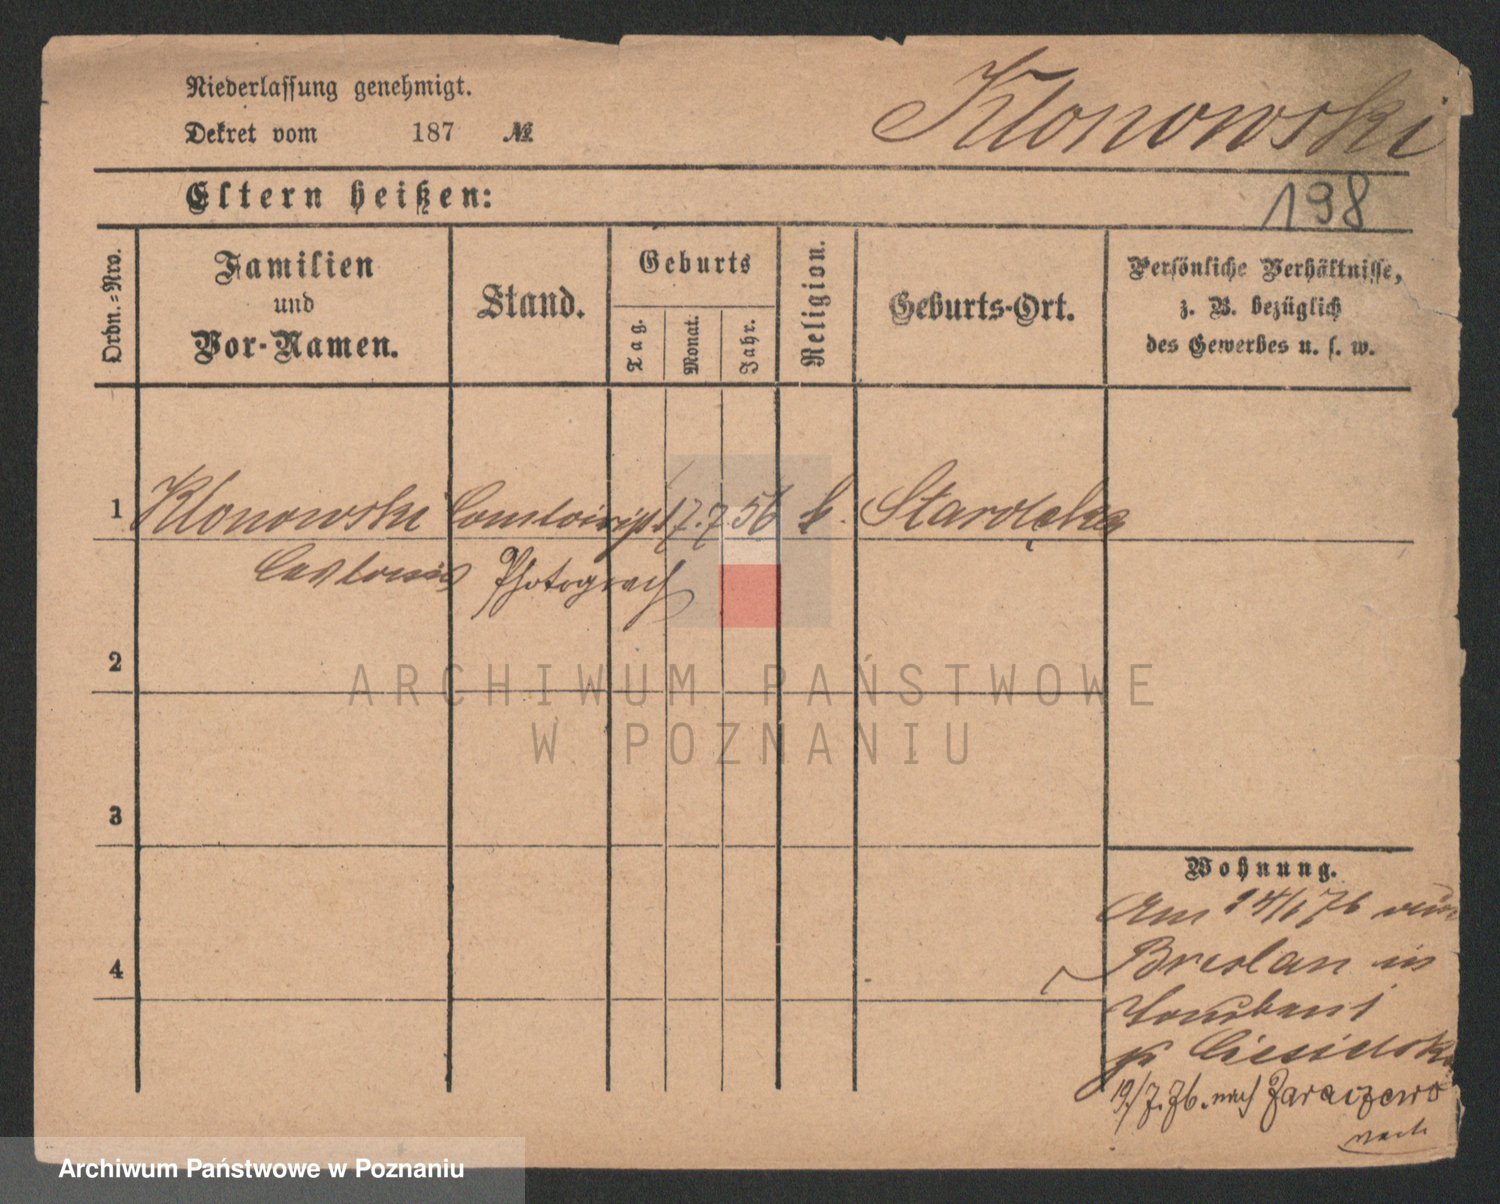 Niederlassung genehmigt.
Klonowski
Dekret vom 187 №
Eltern heißen:
198
Ordn.-Nro.
Familien
und
Vor-Namen.
Stand.
Geburts
Tag.
Monat.
Jahr.
Religion.
Geburts-Ort.
Persönliche Verhältnisse,
z. B. bezüglich
des Gewerbes u. s. w.
1 Klonowski 17. 7. 56 k. Starolęka
Photograph
2
3
4
Wohnung.
Am 24/1 76
Breslau in
19/7. 76. nach Zaraczewo
nach
ARCHIWUM PAŃSTWOWE
W POZNANIU
Archiwum Państwowe w Poznaniu